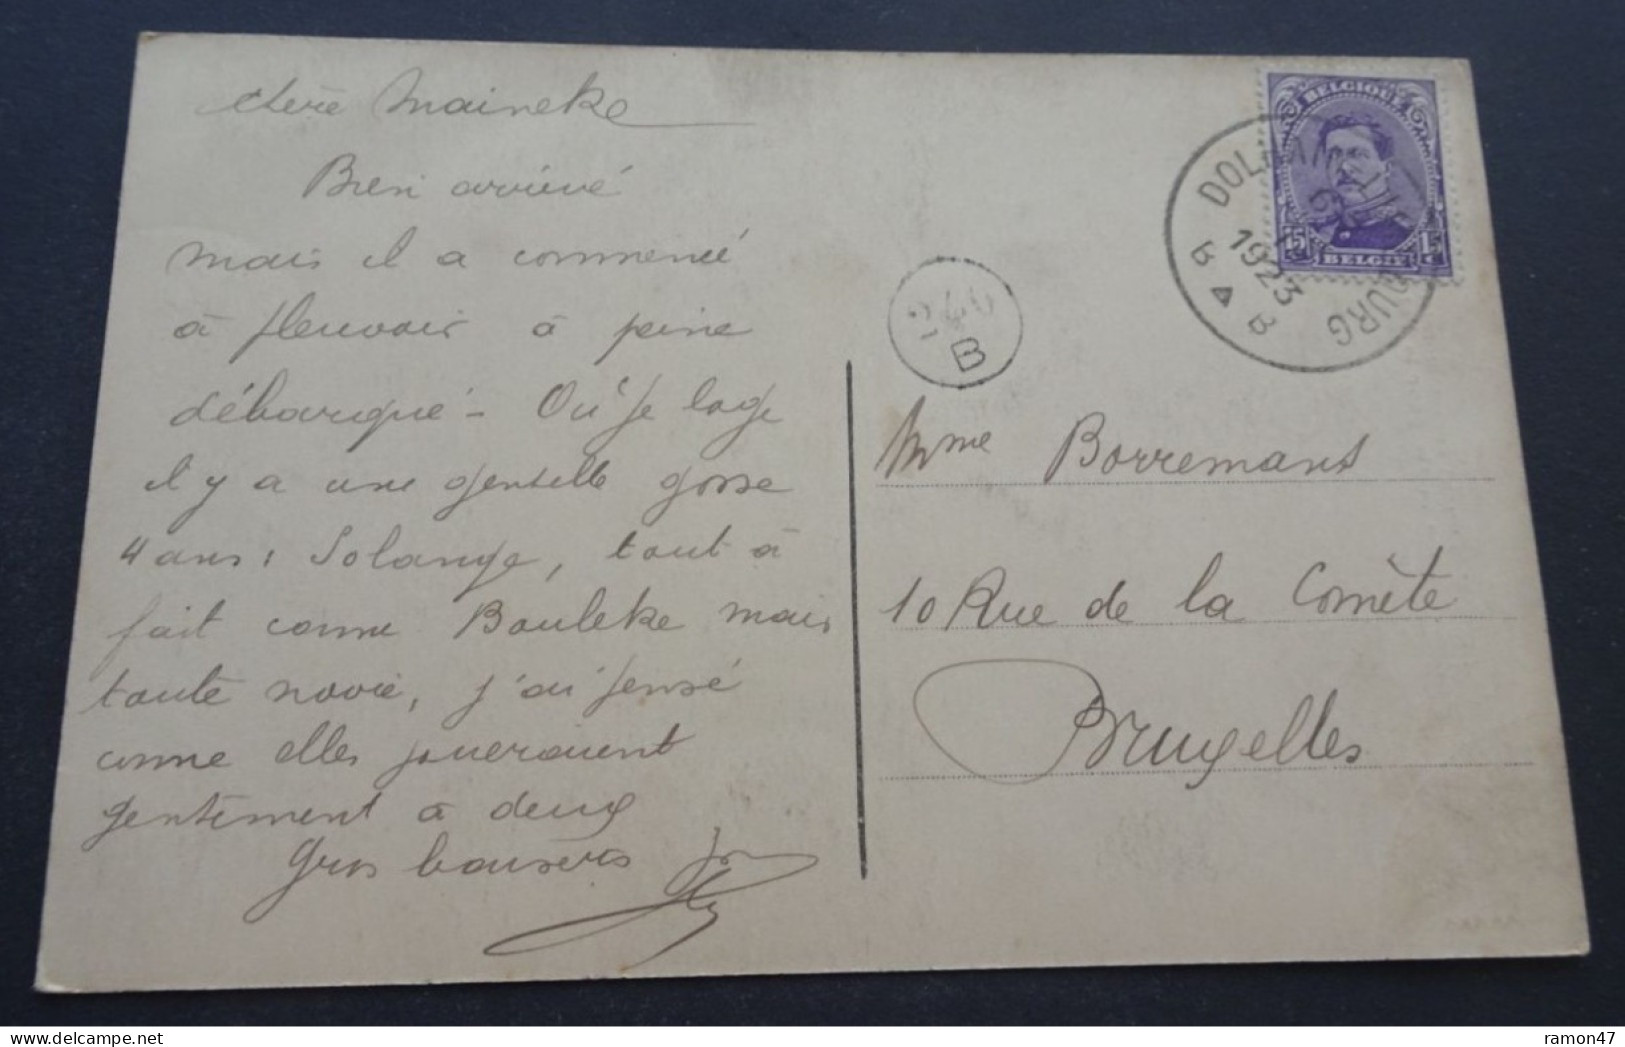 chère Maineke
Bien arrivé
mais il a commencé
à pleuvoir à peine
débarqué - Où je loge
il y a une gentille gosse
4 ans, Solange, tout à
fait comme Bouleke mais
toute noire, j'ai pensé
comme elles joueraient
gentiment à deux
Gros baisers
BELGIQUE
15 15
BELGIE
DOL LIMBOURG
1923
B B
B
Mme Borremans
10 Rue de la Comète
Bruxelles
ramon47